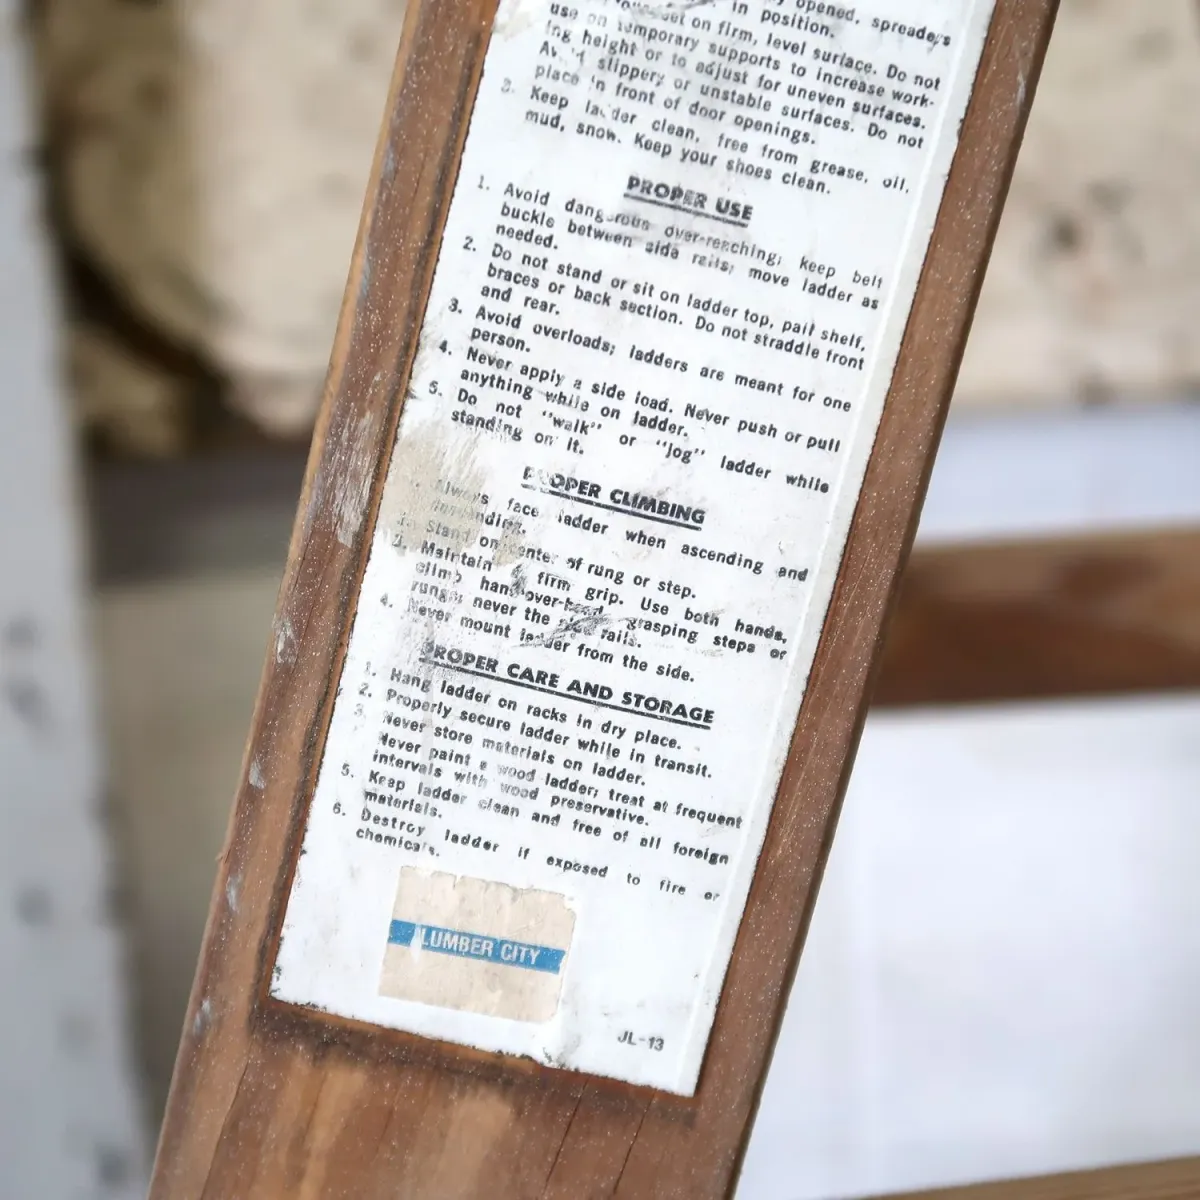 opened, spreaders
in position.
set on firm, level surface. Do not
use on temporary supports to increase work-
ing height or to adjust for uneven surfaces.
Avoid slippery or unstable surfaces. Do not
place in front of door openings.
3. Keep ladder clean, free from grease, oil,
mud, snow. Keep your shoes clean.
PROPER USE
1. Avoid dangerous over-reaching; keep belt
buckle between side rails; move ladder as
needed.
2. Do not stand or sit on ladder top, pail shelf,
braces or back section. Do not straddle front
and rear.
3. Avoid overloads; ladders are meant for one
person.
4. Never apply a side load. Never push or pull
anything while on ladder.
5. Do not "walk" or "jog" ladder while
standing on it.
PROPER CLIMBING
Always face ladder when ascending and
descending.
Stand on center of rung or step.
3. Maintain a firm grip. Use both hands,
climb hand-over-hand, grasping steps or
rungs, never the side rails.
4. Never mount ladder from the side.
PROPER CARE AND STORAGE
1. Hang ladder on racks in dry place.
2. Properly secure ladder while in transit.
3. Never store materials on ladder.
Never paint a wood ladder; treat at frequent
intervals with wood preservative.
5. Keep ladder clean and free of all foreign
materials.
6. Destroy ladder if exposed to fire or
chemicals.
LUMBER CITY
JL-13